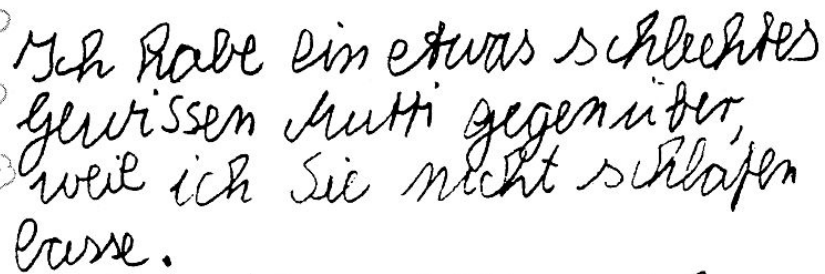 Ich habe ein etwas schlechtes
Gewissen Mutti gegenüber,
weil ich Sie nicht schlafen
lasse.